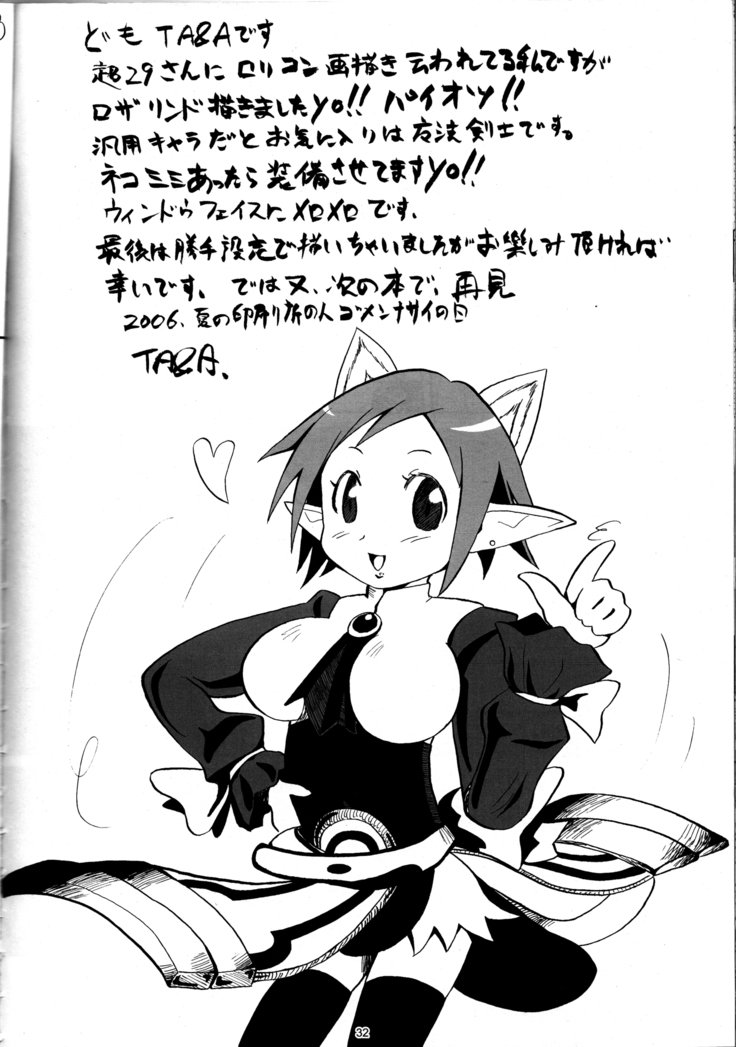 どもTA2Aです
超29さんにロリコン画描き云われてる私ですが
ロザリンド描きましたyo!! パイオツ!!
汎用キャラだとお気に入りは魔法剣士です。
ネコミミあったら装備させてますyo!!
ウィンドゥフェイスにメロメロです.
最後は勝手設定で描いちゃいましたがお楽しみ頂ければ
幸いです。では又、次の本で、再見
2006、夏の印刷所の人ゴメンナサイの日
TA2A.
32